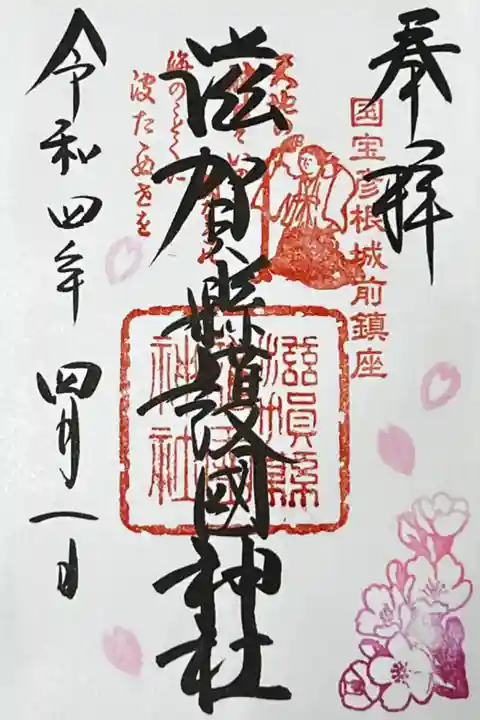 奉拝
国宝彦根城前鎮座
滋賀縣護國神社
滋賀縣
神社
波たゝぬ世を
令和四年 四月一日